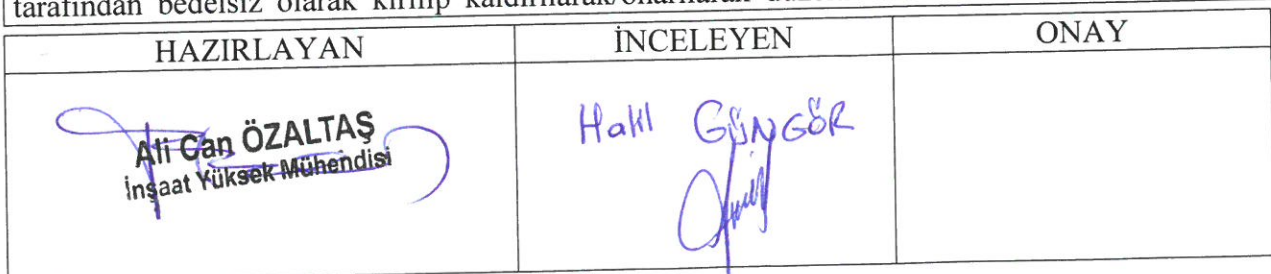 tarafından bedelsiz olarak kırılıp kaldırılarak/onarılarak
HAZIRLAYAN İNCELEYEN ONAY
Ali Can ÖZALTAŞ
İnşaat Yüksek Mühendisi
Halil GÜNGÖR